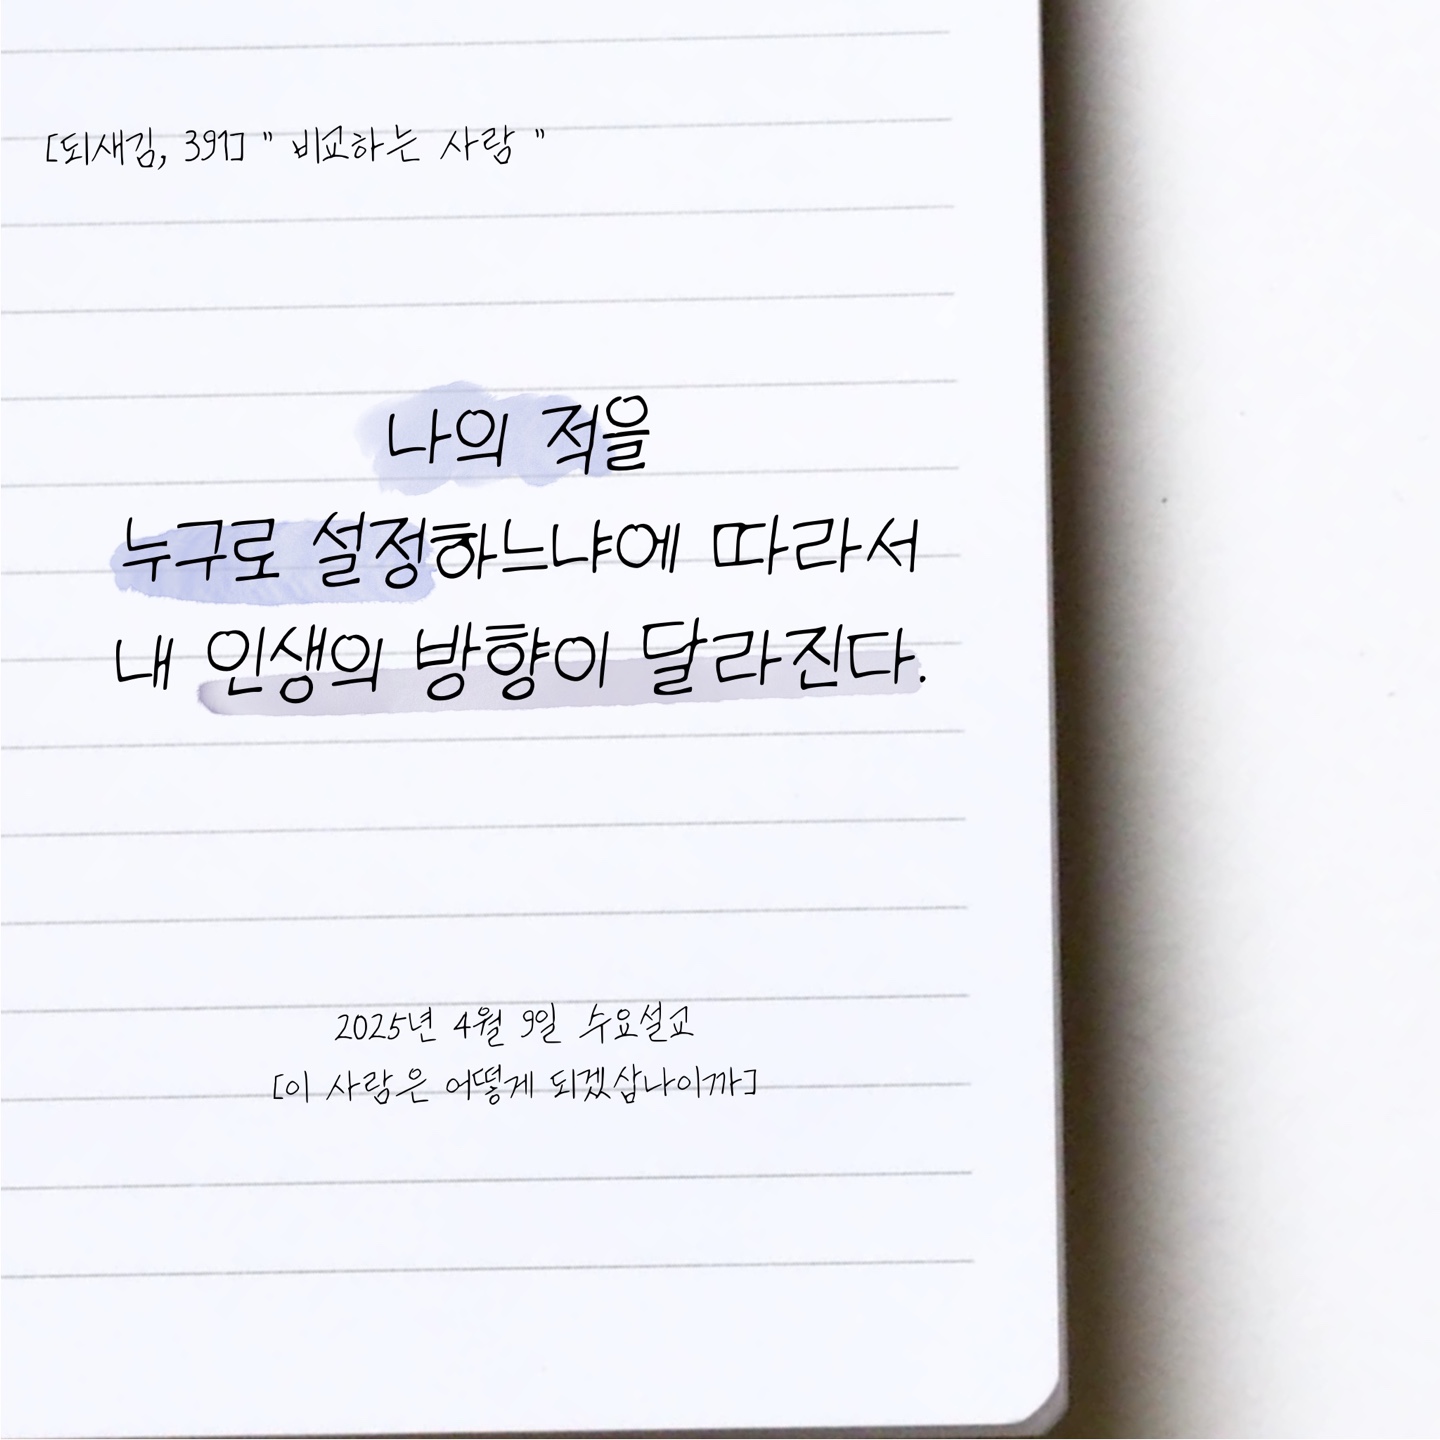 [되새김, 391] " 비교하는 사람 "
나의 적을
누구로 설정하느냐에 따라서
내 인생의 방향이 달라진다.
2025년 4월 9일 수요설교
[이 사람은 어떻게 되겠삽나이까]